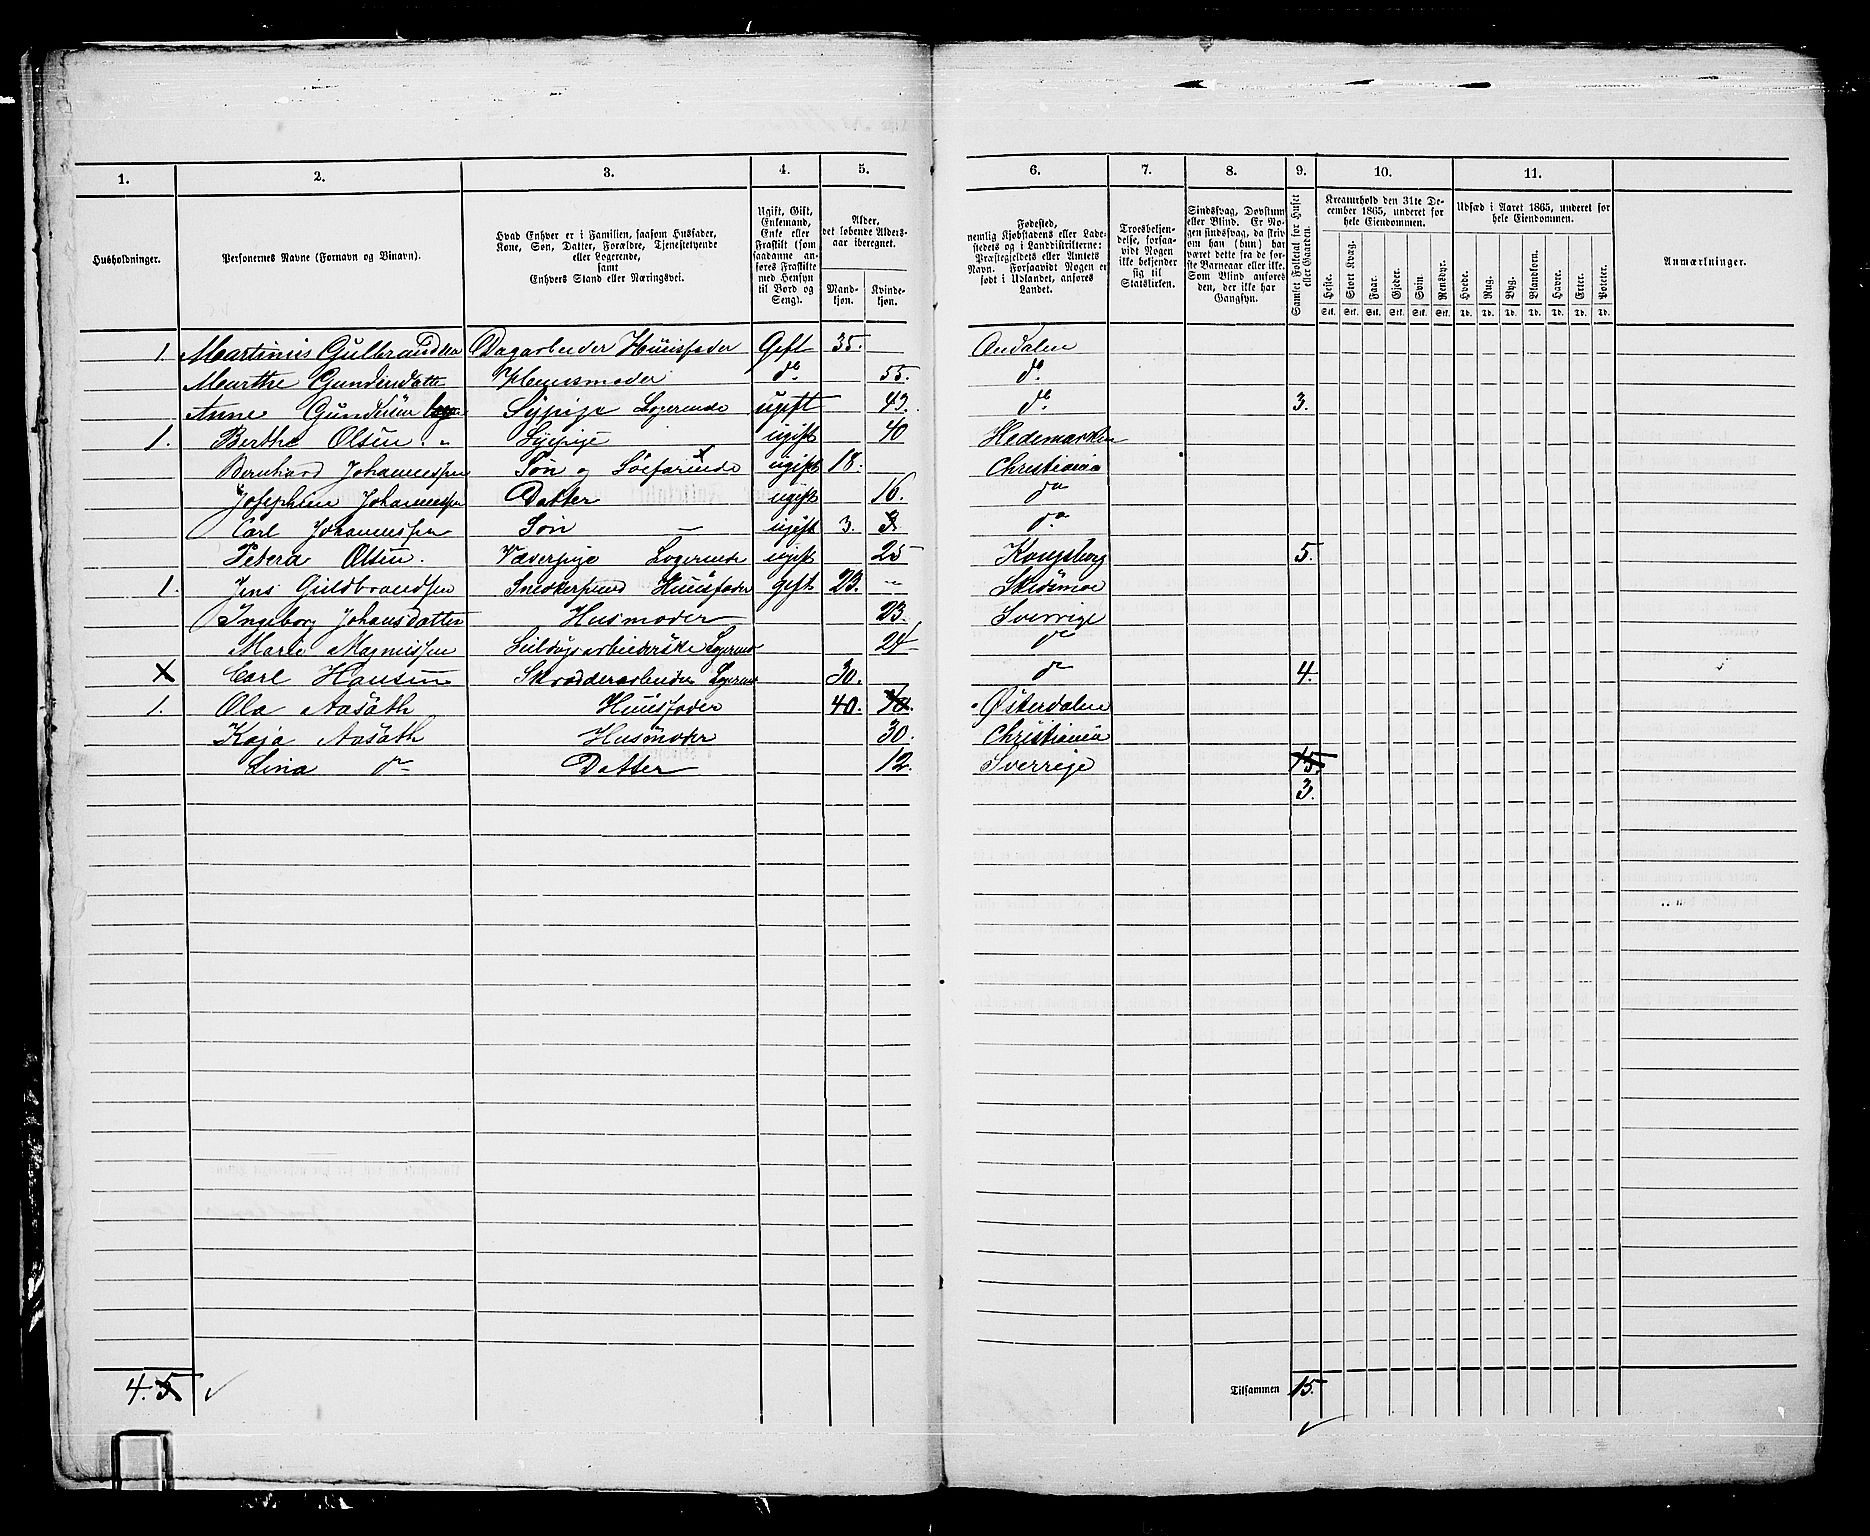 1. 2. 3. 4. 5. 6. 7. 8. 9. 10. 11.
Husholdninger.
Personernes Navne (Fornavn og Tilnavn).
Hvad Enhver er i Familien, saasom Husfader, Kone, Søn, Datter, Forældre, Tjenestetyende eller Logerende, samt Enhvers Stand eller Næringsvei.
Ugift, Gift, Enkemand, Enke eller Fraskilt (som saadanne anføres Fraskilte med Hensyn til Bord og Seng).
Alder, det løbende Aldersaar iberegnet.
Mandkjøn. Kvindekjøn.
Fødested, nemlig Kjøbstadens eller Ladestedets og i Landdistrikterne: Præstegjeldets eller Amtets Navn. Forsaavidt Nogen er født i Udlandet, anføres Landet.
Troesbekjendelse, forsaavidt Nogen ikke bekjender sig til Statskirken.
Sindssvag, Døvstum eller Blind. Er Nogen sindssvag, da skrives om han (hun) har været dette fra de første Barneaar eller ikke. Som Blind anføres den, der ikke har Gangsyn.
Samlet Folketal for Huset eller Gaarden.
Kreaturhold den 31te December 1865, underet for hele Eiendommen.
Heste. Stort Kvæg. Faar. Gjeder. Svin. Rensdyr.
Stk. Stk. Stk. Stk. Stk. Stk.
Udsæd i Aaret 1865, underet for hele Eiendommen.
Hvede. Rug. Byg. Blandkorn. Havre. Erter. Poteter.
Td. Td. Td. Td. Td. Td. Td.
Anmærkninger.
1. Martinus Gulbrandsen Dagarbeider Huusfader Gift 35. Øudalen
Marthe Gundersdatter Huusmoder do 55. do
Anne Gundersen Sypige Logerende ugift 43. do 3.
1. Berthe Olsen Sypige ugift 40 Hedemarken
Bernhard Johannessen Søn og Søefarende ugift 18. Christiania
Josephine Johannessen Datter ugift 16. do
Carl Johannessen Søn ugift 3. 3. do
Petera Olsen. Væverpige Logerende ugift 25 Kongsberg 5.
1. Jens Guldbrandsen Snedkersvend Huusfader gift 23. Skedsmoe
Ingeborg Johansdatter Husmoder 23. Sverrige
Marie Magnussen Logerende 24 do
X Carl Hansen Skrædderarbeider Logerende 30. do 4.
1. Ola Aasæth Huusfader 40. 40. Østerdalen
Kaja Aasæth Husmoder 30. Christiania
Lina do Datter 12. Sverrige 15.
3.
4. 5. Tilsammen 15.